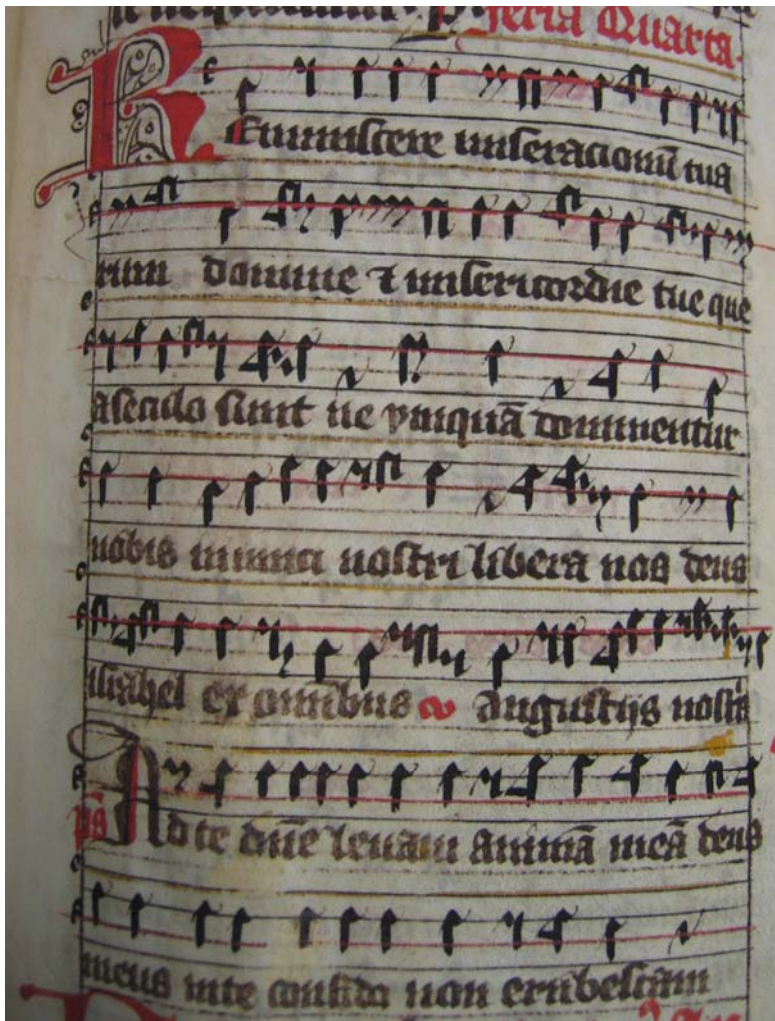 feria Quarta.
Reminiscere miseracionū tua
rum domine ⁊ misericordie tue que
a seculo sunt ne vmquā dominentur
nobis inimici nostri libera nos deus
israhel ex omībus angustijs nostris
p̄s Ad te dn̄e leuaui animā meā deus
meus in te confido non erubescam